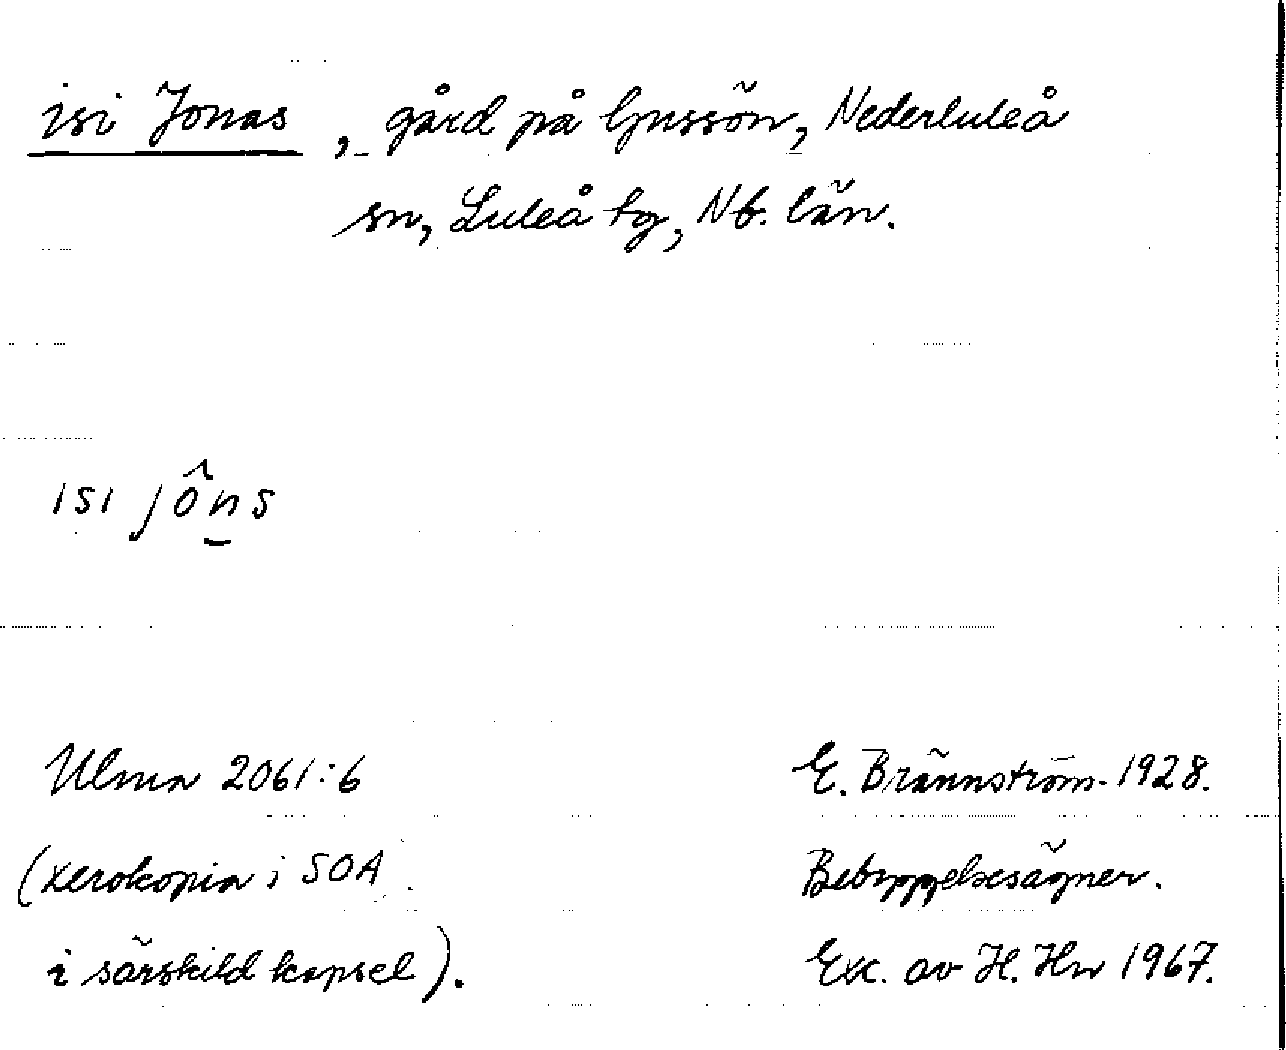 isi Jonas, gård på Ljussön, Nederluleå
sn, Luleå tg, Nb. län.
isi jôn̮s
Ulma 2061:6
(xerokopia i SOA
i särskild kapsel).
E. Brännström 1928.
Bebyggelsesägner.
Exc. av H. Hn 1967.